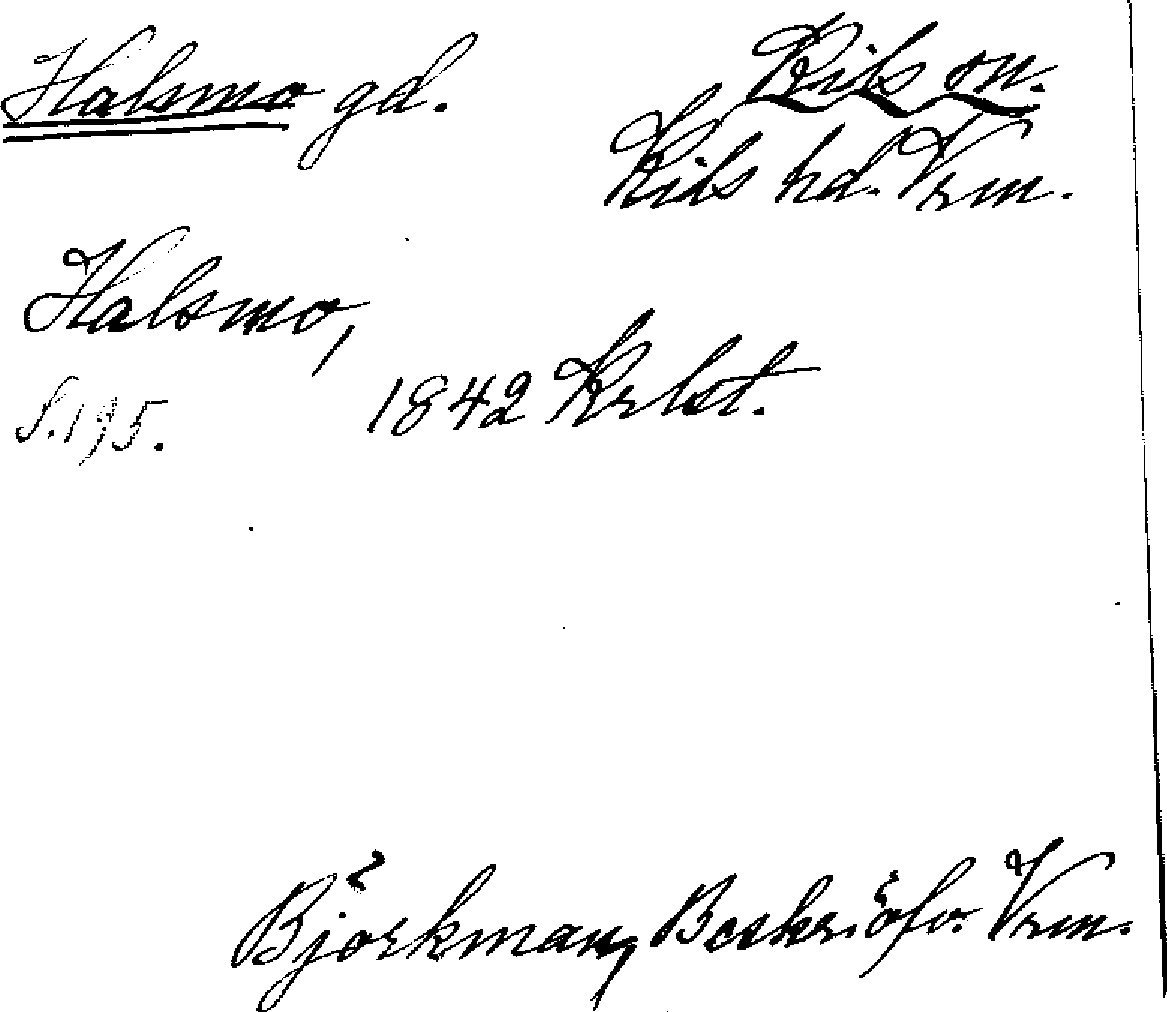 Halsmo gd.
Kils sn.
Kils hd. Vrm.
Halsmo,
S. 195.
1842 Krlst.
Björkman, Beskr. öfv. Vrm.